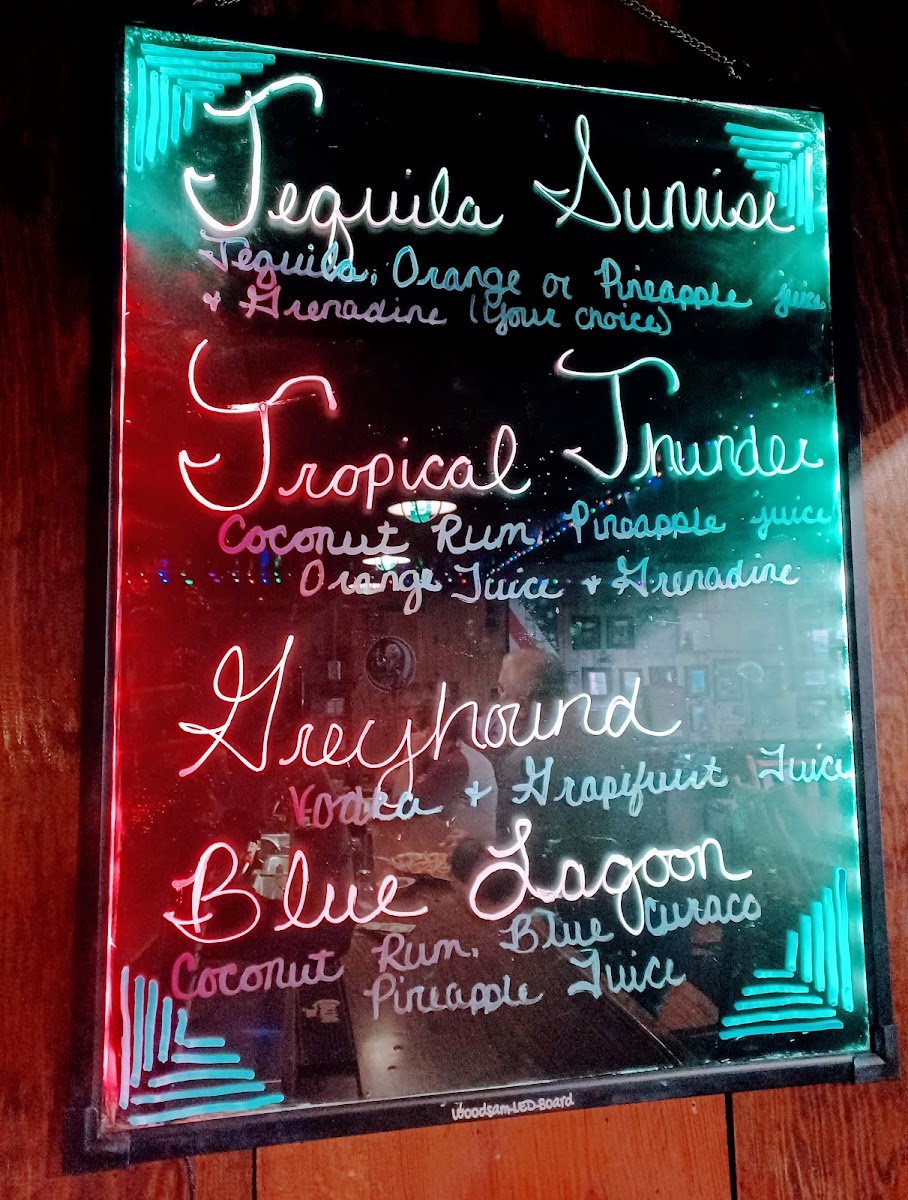 Tequila Sunrise
Tequila, Orange or Pineapple juice
+ Grenadine (your choice)
Tropical Thunder
Coconut Rum, Pineapple juice
Orange Juice + Grenadine
Greyhound
Vodka + Grapifruit Juice
Blue Lagoon
Coconut Rum, Blue Curaco
Pineapple Juice
Woodsam-LED-Board